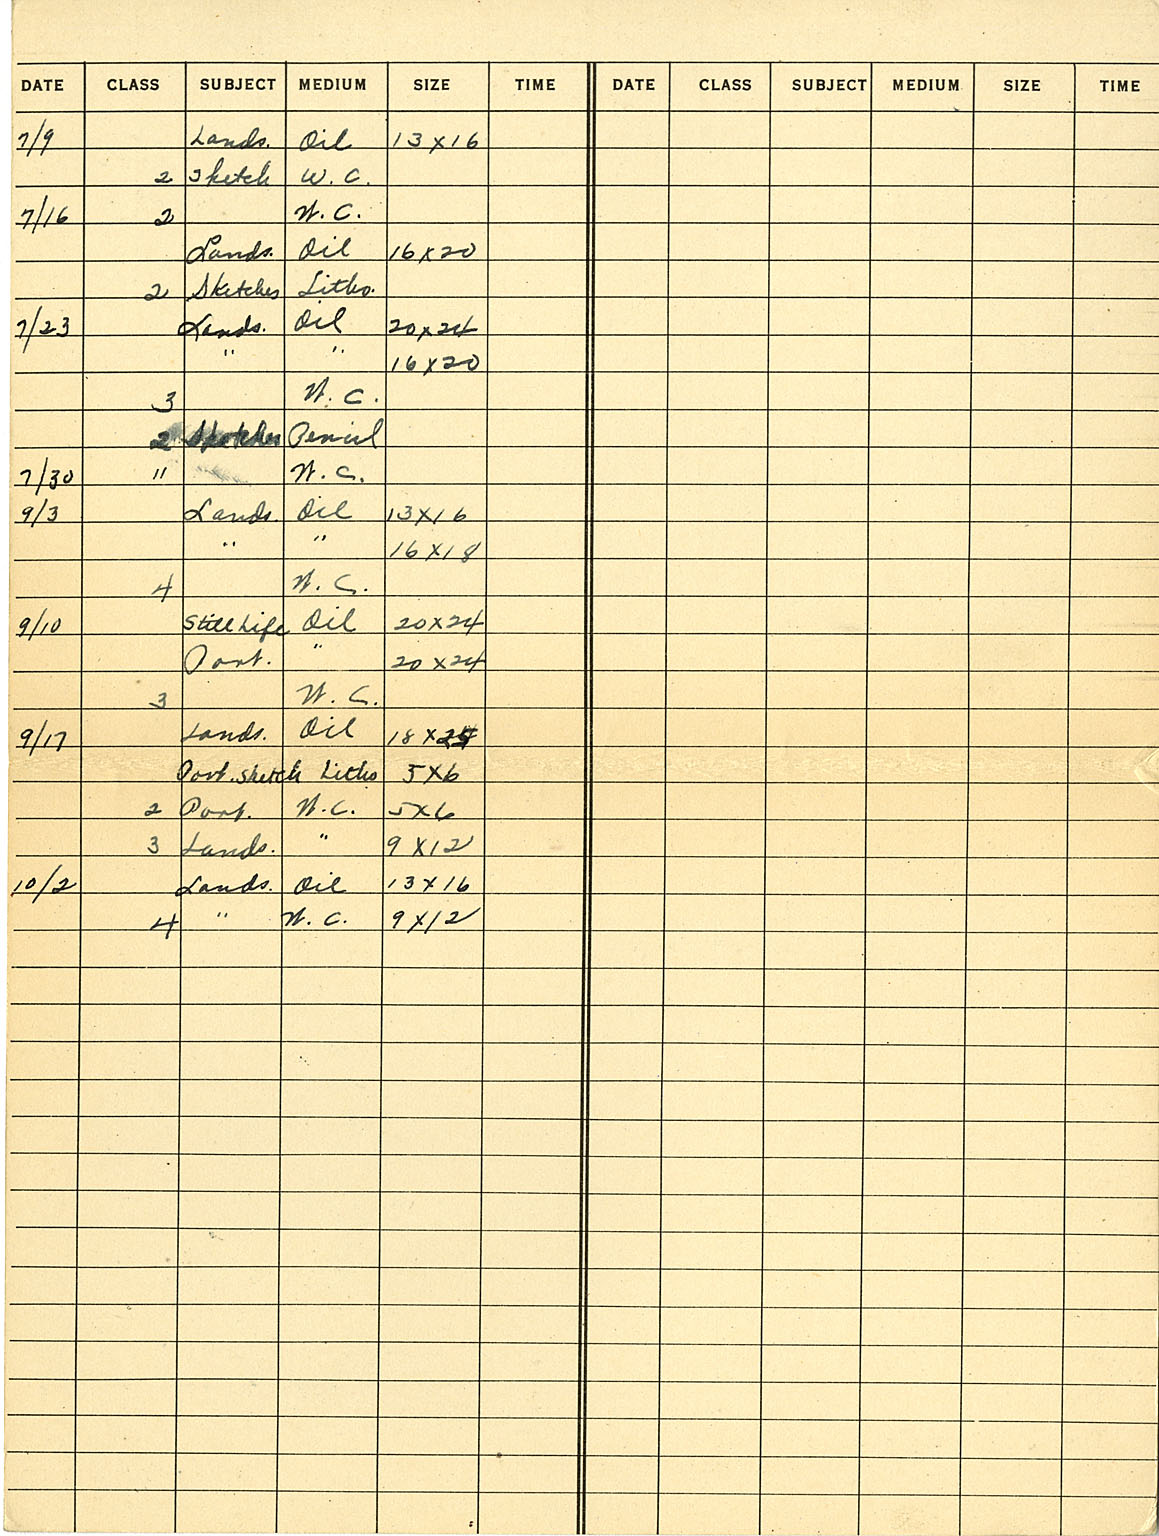 DATE CLASS SUBJECT MEDIUM SIZE TIME DATE CLASS SUBJECT MEDIUM SIZE TIME
7/9 Lands. Oil 13 x 16
2 Sketch W. C.
7/16 2 W. C.
Lands. Oil 16 x 20
2 Sketches Litho.
7/23 Lands. Oil 20 x 24
" " 16 x 20
3 W. C.
2 Sketches Pencil
7/30 " W. C.
9/3 Lands. Oil 13 x 16
" " 16 x 18
4 W. C.
9/10 Still Life Oil 20 x 24
Port. " 20 x 24
3 W. C.
9/17 Lands. Oil 18 x
Port. Sketch Litho 5 x 6
2 Port. W. C. 5 x 6
3 Lands. " 9 x 12
10/2 Lands. Oil 13 x 16
4 " W. C. 9 x 12